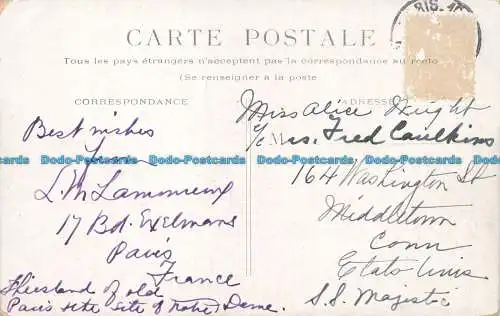 RIS_10
CARTE POSTALE
Tous les pays étrangers n'acceptent pas la correspondance au recto
(Se renseigner à la poste
CORRESPONDANCE
Best wishes
from
L. M. Lamoureux
17 Bd. Exelmans
Paris
France
island of old
Paris site of Notre Dame.
ADRESSE
Miss Alice Wright
c/o Mrs. Fred Caulkins
164 Washington St
Middletown
Conn
Etats Unis
S.S. Majestic
Dodo-Postcards Dodo-Postcards Dodo-Postcards Dodo-Postcards Dodo-Postcards